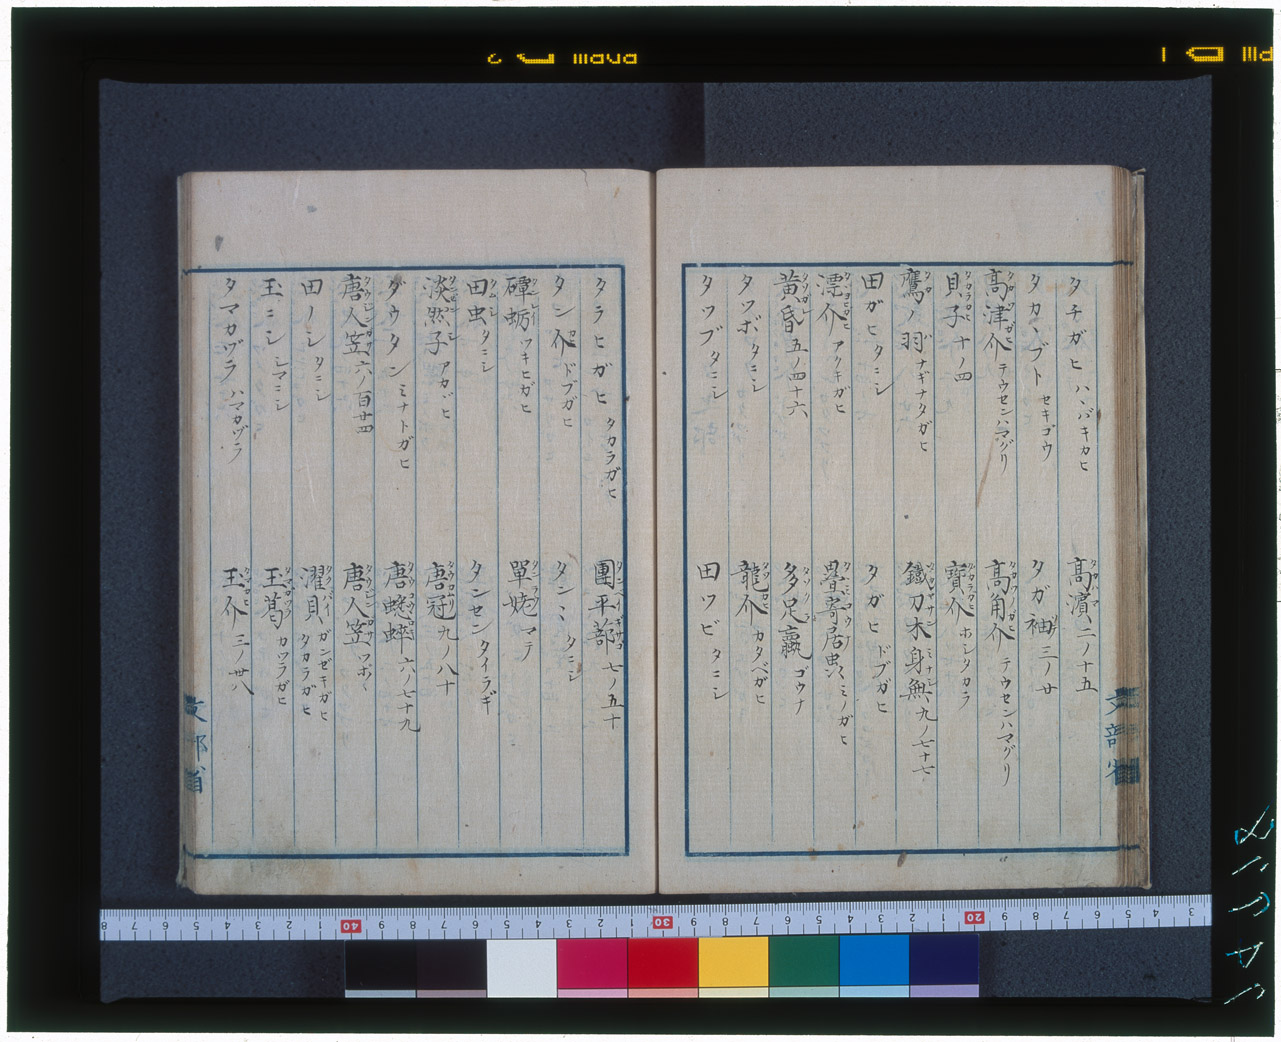 タチガヒ ハヽバキカヒ
髙濱 二ノ十五
タカヽブト セキゴウ
タガ袖 三ノ廿
髙津介 テウセンハマグリ
髙角介 テウセンハマグリ
貝子 十ノ四
寶介 ホシタカラ
鷹ノ羽 ナギナタガヒ
鐵刀木身無 九ノ七十七
田ガヒ タニシ
タガヒ ドブガヒ
漂介 アクキガヒ
疊寄居虫 ミノガヒ
黄昏 五ノ四十六
多足蠃 ゴウナ
タツボ タニシ
龍介 カタベガヒ
タツブ タニシ
田ツビ タニシ
タラヒガヒ タカラガヒ
團平蔀 七ノ五十
タン介 ドブガヒ
タンヽ タニシ
磹蛎 ツキヒガヒ
單蟯 マテ
田虫 タニシ
タンセン タイラギ
淡㷱子 アカヾヒ
唐冠 九ノ八十
ダウタン ミナトガヒ
唐蟋蟀 六ノ七十九
唐人笠 六ノ百廿四
唐人笠 ツボ〱
田ノシ タニシ
濯貝 ガンゼキガヒ タカラガヒ
玉ニシ シマニシ
玉葛 カツラガヒ
タマカヅラ ハマカヅラ
玉介 三ノ卅八
文部省
文部省